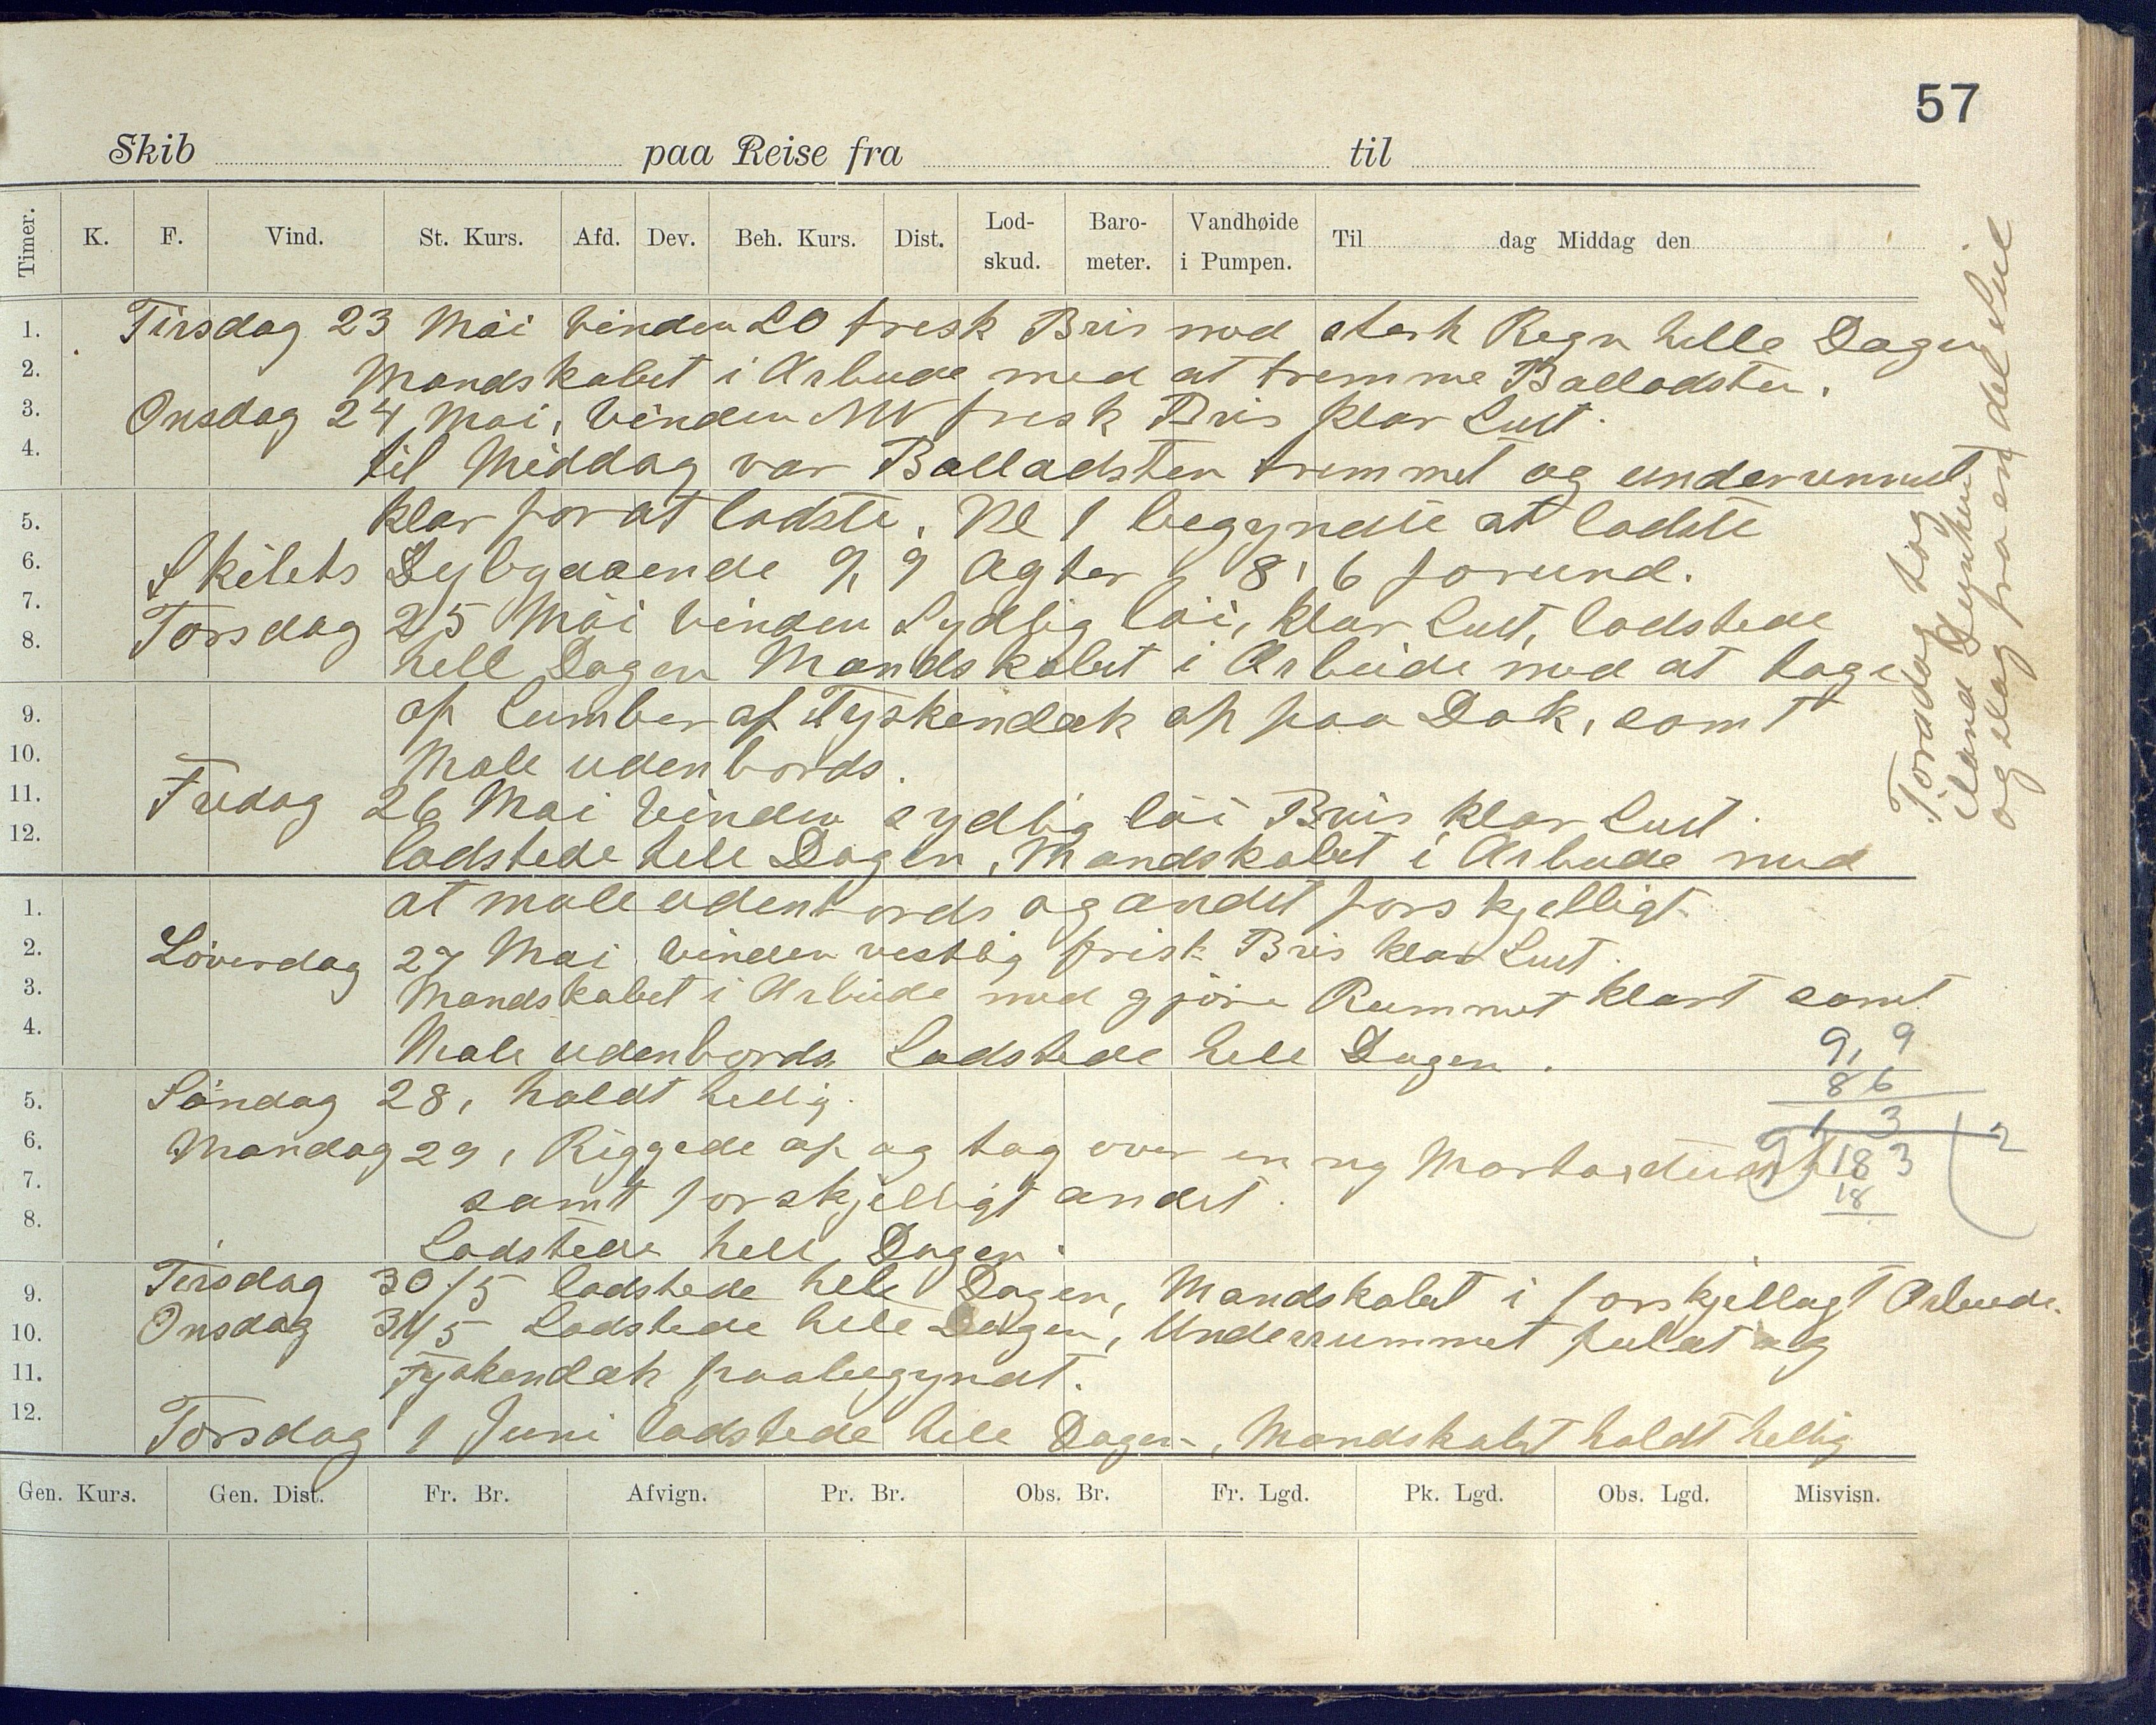 57
Skib paa Reise fra til
Timer. K. F. Vind. St. Kurs. Afd. Dev. Beh. Kurs. Dist. Lod-skud. Baro-meter. Vandhøide i Pumpen. Til dag Middag den
1. Tirsdag 23 Mai Vinden SO frisk Bris med sterk Regn helle Dagen
2. Mandskabet i Arbeide med at tremme Balladsten.
3. Onsdag 24 Mai, Vinden NW frisk Bris klar Luft.
4. til Middag var Balladsten tremmet og underrummet
5. klar for at ladste. Kl 1 begyndte at ladste
6. Skibets Dybgaaende 9,9 Agter, 8,6 forund.
7. Torsdag 25 Mai Vinden Sydlig løi, klar Luft, ladstede
8. hell Dagen Mandskabet i Arbeide med at tage
9. op Lumber af Tyskendæk op paa Dæk, samt
10. Male udenbords.
11. Fredag 26 Mai Vinden sydlig løi Bris klar Luft.
12. ladstede hele Dagen, Mandskabet i Arbeide med
1. at male udenbords og andet forskjelligt
2. Løverdag 27 Mai Vinden vestlig frisk Bris klar Luft.
3. Mandskabet i Arbeide med gjøre Rummet klart samt
4. Male udenbords Ladstede hele Dagen.
5. Søndag 28, holdt hellig.
6. Mandag 29, Riggede op og tog over en ny
7. samt forskjelligt andet.
8. Ladstede hele Dagen.
9. Tirsdag 30/5 ladstede hele Dagen, Mandskabet i forskjelligt Arbeide.
10. Onsdag 31/5 Ladstede hele Dagen, Underrummet fuldt og
11. Tyskendæk paabegyndt.
12. Torsdag 1 Juni ladstede hele Dagen, Mandskabet holdt hellig
Torsdag tog
iland
og slag fra en del Seil
9, 9
8 6
1 3
9 183 2
18
Gen. Kurs. Gen. Dist. Fr. Br. Afvign. Pr. Br. Obs. Br. Fr. Lgd. Pk. Lgd. Obs. Lgd. Misvisn.